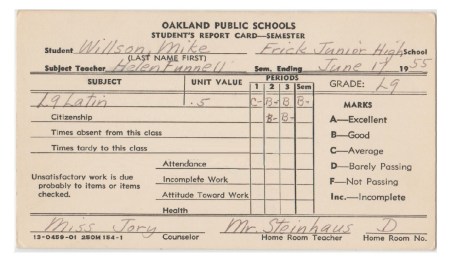 OAKLAND PUBLIC SCHOOLS
STUDENT'S REPORT CARD—SEMESTER
Student Willson, Mike Frick Junior High School
(LAST NAME FIRST)
Subject Teacher Helen Funnell Sem. Ending June 17 1955
SUBJECT UNIT VALUE PERIODS GRADE: L9
1 2 3 Sem
L9 Latin .5 C- B- B B-
MARKS
Citizenship B- B-
A—Excellent
Times absent from this class
B—Good
Times tardy to this class
C—Average
Attendance
D—Barely Passing
Unsatisfactory work is due probably to items or items checked.
Incomplete Work
F—Not Passing
Attitude Toward Work
Inc.—Incomplete
Health
Miss Jory Mr. Steinhaus D
13-0459-01 250M 154-1 Counselor Home Room Teacher Home Room No.